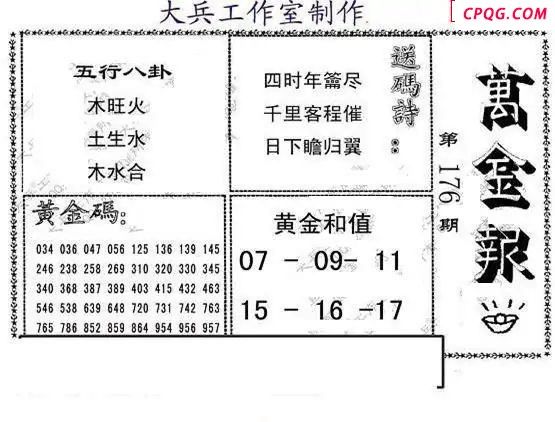 大兵工作室制作
CPQG.COM
五行八卦
木旺火
土生水
木水合
送碼詩：
四时年籥尽
千里客程催
日下瞻归翼
萬金报
第176期
黃金碼：
034 036 047 056 125 136 139 145
246 238 258 269 310 320 330 345
340 368 387 389 403 415 432 463
546 538 639 648 720 731 742 763
765 786 852 859 864 954 956 957
黄金和值
07 - 09- 11
15 - 16 -17